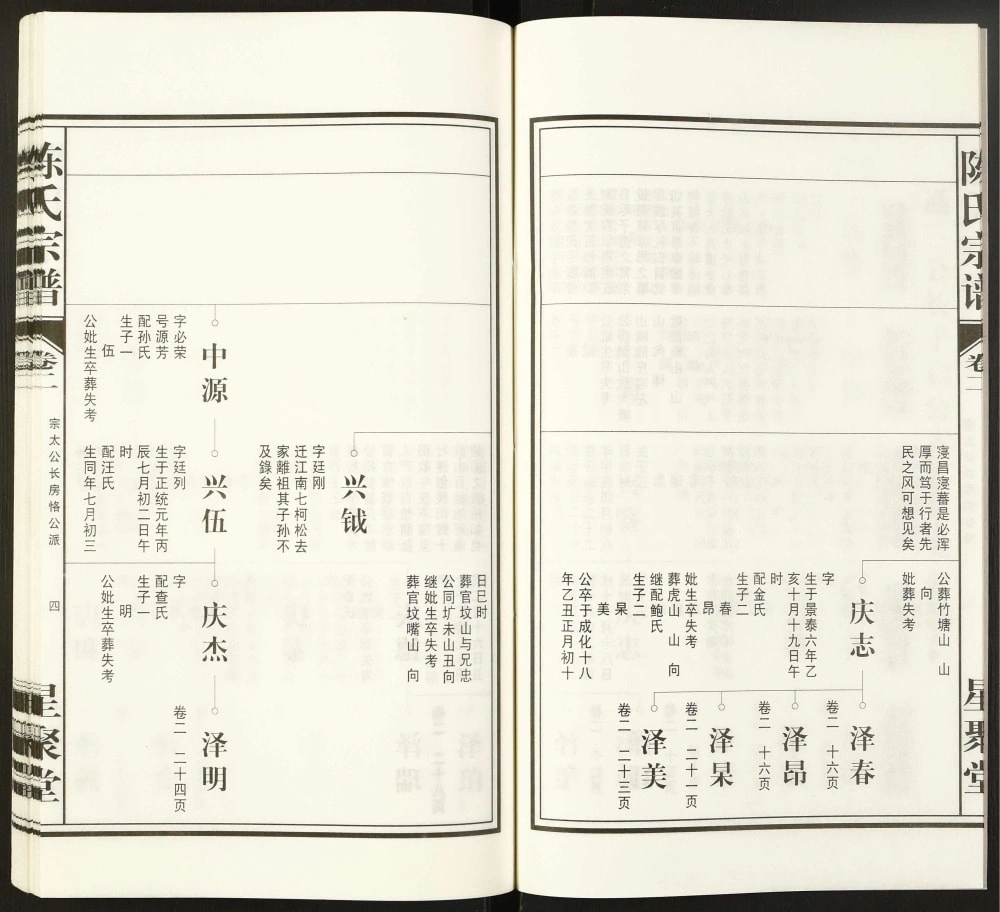 陈氏宗谱
卷二
星聚堂
寖昌寖蕃是必浑
厚而笃于行者先
民之风可想见矣
公葬竹塘山　山
向
妣葬失考
庆志
字
生于景泰六年乙
亥十月十九日午
时
配金氏
生子二
春
昂
妣生卒失考
葬虎山　山　向
继配鲍氏
生子二
杲
美
公卒于成化十八
年乙丑正月初十
泽春
卷二　十六页
泽昂
卷二　十六页
泽杲
卷二　二十一页
泽美
卷二　二十三页
兴钺
字廷刚
迁江南七柯松去
家離祖其子孙不
及錄矣
日巳时
葬官坟山与兄忠
公同圹未山丑向
继妣生卒失考
葬官坟嘴山　向
中源
字必荣
号源芳
配孙氏
生子一
伍
公妣生卒葬失考
兴伍
字廷列
生于正统元年丙
辰七月初二日午
时
配汪氏
生同年七月初三
庆杰
字
配查氏
生子一
明
公妣生卒葬失考
泽明
卷二　二十四页
陈氏宗谱
卷二
宗太公长房恪公派
四
星聚堂